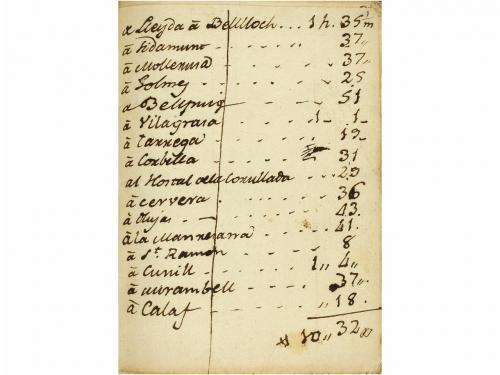 de Lleyda â Bellloch... 1 h. 35 m
â Sidamunt - - - 37 "
â Mollerusa - - - 37 "
â Golmes - - - 25
a Bellpuig - - - 51
â Vilagrasa - - - 1 - 1 -
â Tarrega - - - 19 -
â Corbella - - - 31
al Hostal de la Corullada - - - 29
â cervera - - - 36
â Olujas - - - 43.
â la Manresana - - - 41.
â St. Ramon - - - 8
â Cunill - - - 1 " 4 "
â aurambell - - - 37 "
â Calaf - - - " 18.
10 " 32